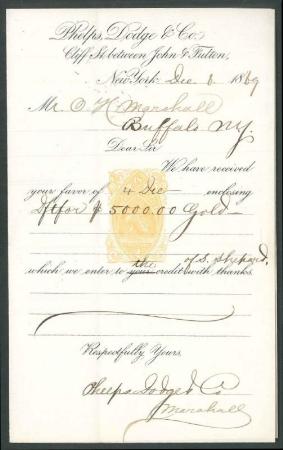 Phelps, Dodge & Co.
Cliff St. between John & Fulton,
New York Dec 6 1869
Mr. O. H. Marshall
Buffalo N.Y.
Dear Sir
We have received
your favor of 4 Dec enclosing
Dft for $ 5000.00 Gold
the of S. Shepard.
which we enter to your credit with thanks.
Respectfully Yours,
Phelps Dodge & Co
Marshall